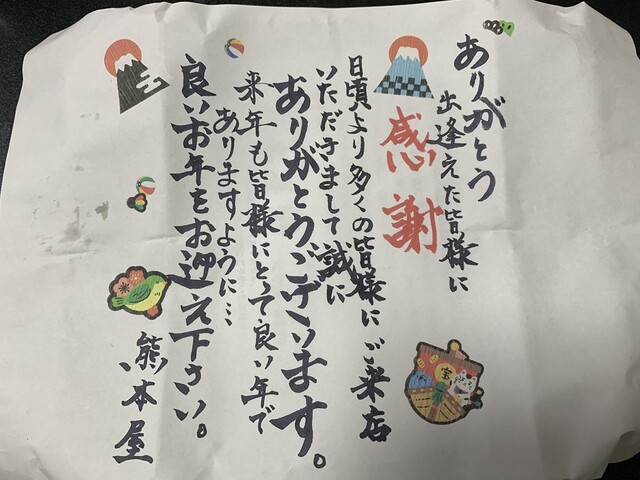 ありがとう
出逢えた皆様に
感謝
日頃より多くの皆様にご来店
いただきまして誠に
ありがとうございます。
来年も皆様にとって良い年で
ありますように…
良いお年をお迎え下さい。
熊本屋
宝